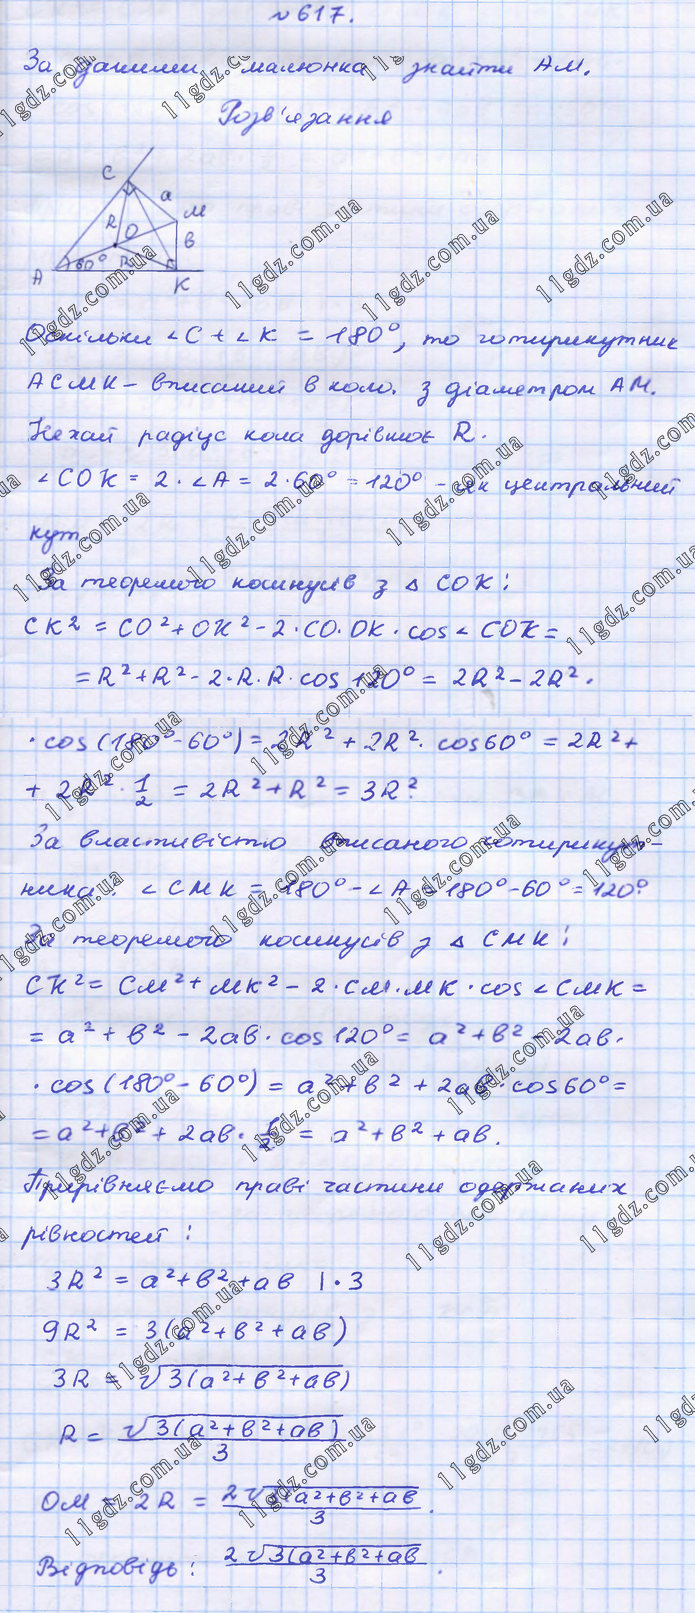 №617.
За даними малюнка знайти АМ.
Розв'язання
C
a
M
R
O
в
A
60°
R
K
Оскільки ∠C + ∠K = 180°, то чотирикутник
АСМК – вписаний в коло. з діаметром АМ.
Нехай радіус кола дорівнює R.
∠COK = 2·∠A = 2·60° = 120° – як центральний
кут.
За теоремою косинусів з △ COK:
CK² = CO² + OK² - 2·CO·OK·cos∠COK =
= R² + R² - 2·R·R·cos 120° = 2R² - 2R²·
·cos(180° - 60°) = 2R² + 2R²·cos60° = 2R² +
+ 2R²·1/2 = 2R² + R² = 3R².
За властивістю вписаного чотирикут-
ника: ∠CMK = 180° - ∠A = 180° - 60° = 120°.
За теоремою косинусів з △ CMK:
CK² = CM² + MK² - 2·CM·MK·cos∠CMK =
= a² + в² - 2aв·cos120° = a² + в² - 2aв·
·cos(180° - 60°) = a² + в² + 2aв·cos60° =
= a² + в² + 2aв·1/2 = a² + в² + aв.
Прирівнюємо праві частини одержаних
рівностей:
3R² = a² + в² + aв |·3
9R² = 3(a² + в² + aв)
3R = √3(a² + в² + aв)
R = √3(a² + в² + aв) / 3
OM = 2R = 2√3(a² + в² + aв / 3.
Відповідь: 2√3(a² + в² + aв / 3.
11gdz.com.ua